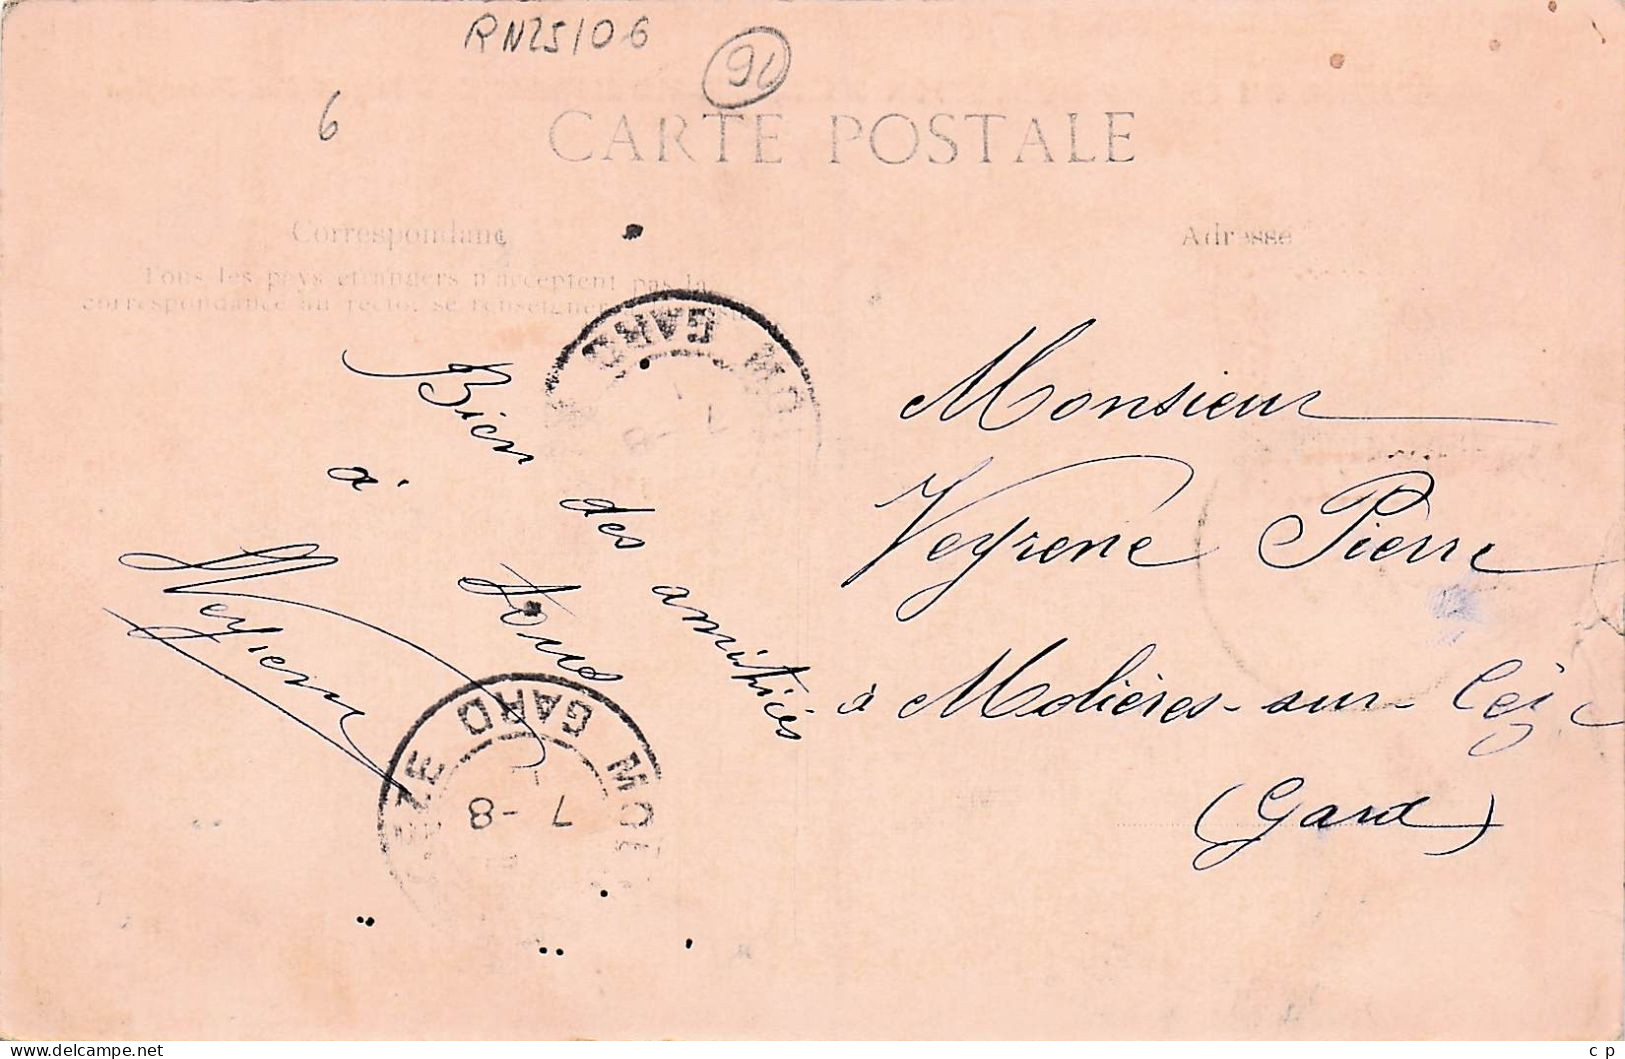 RN25106
91
6
CARTE POSTALE
Correspondance
Adresse
Tous les pays étrangers n'acceptent pas la
correspondance au recto, se renseigner
GARD
MO
7 -8
Bien des amitiés
à tous
Veyrene
MOL
GARD
7 -8
Monsieur
Veyrene Pierre
à Molières-sur-Cèze
(Gard)
delcampe.net
c p